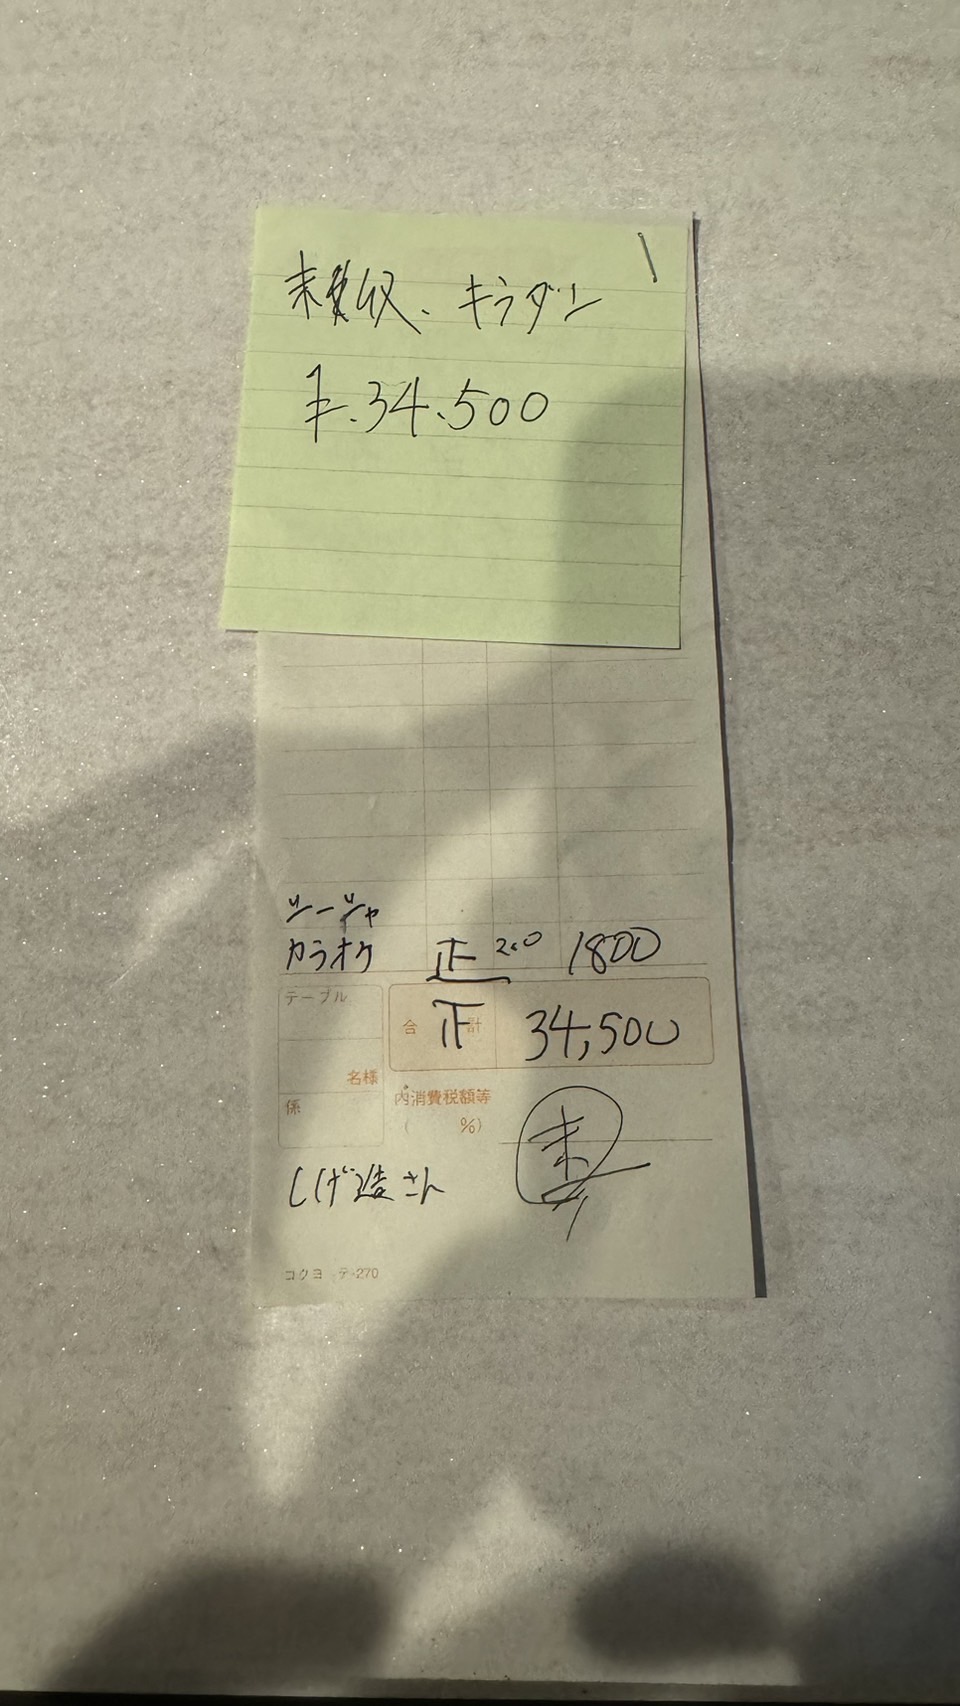 未収、キラダン
¥.34.500
シーシャ
カラオケ 正 200 1800
テーブル
合計 正 34,500
名様
係
内消費税額等
( %)
未
しげ造さん
コクヨ テ-270